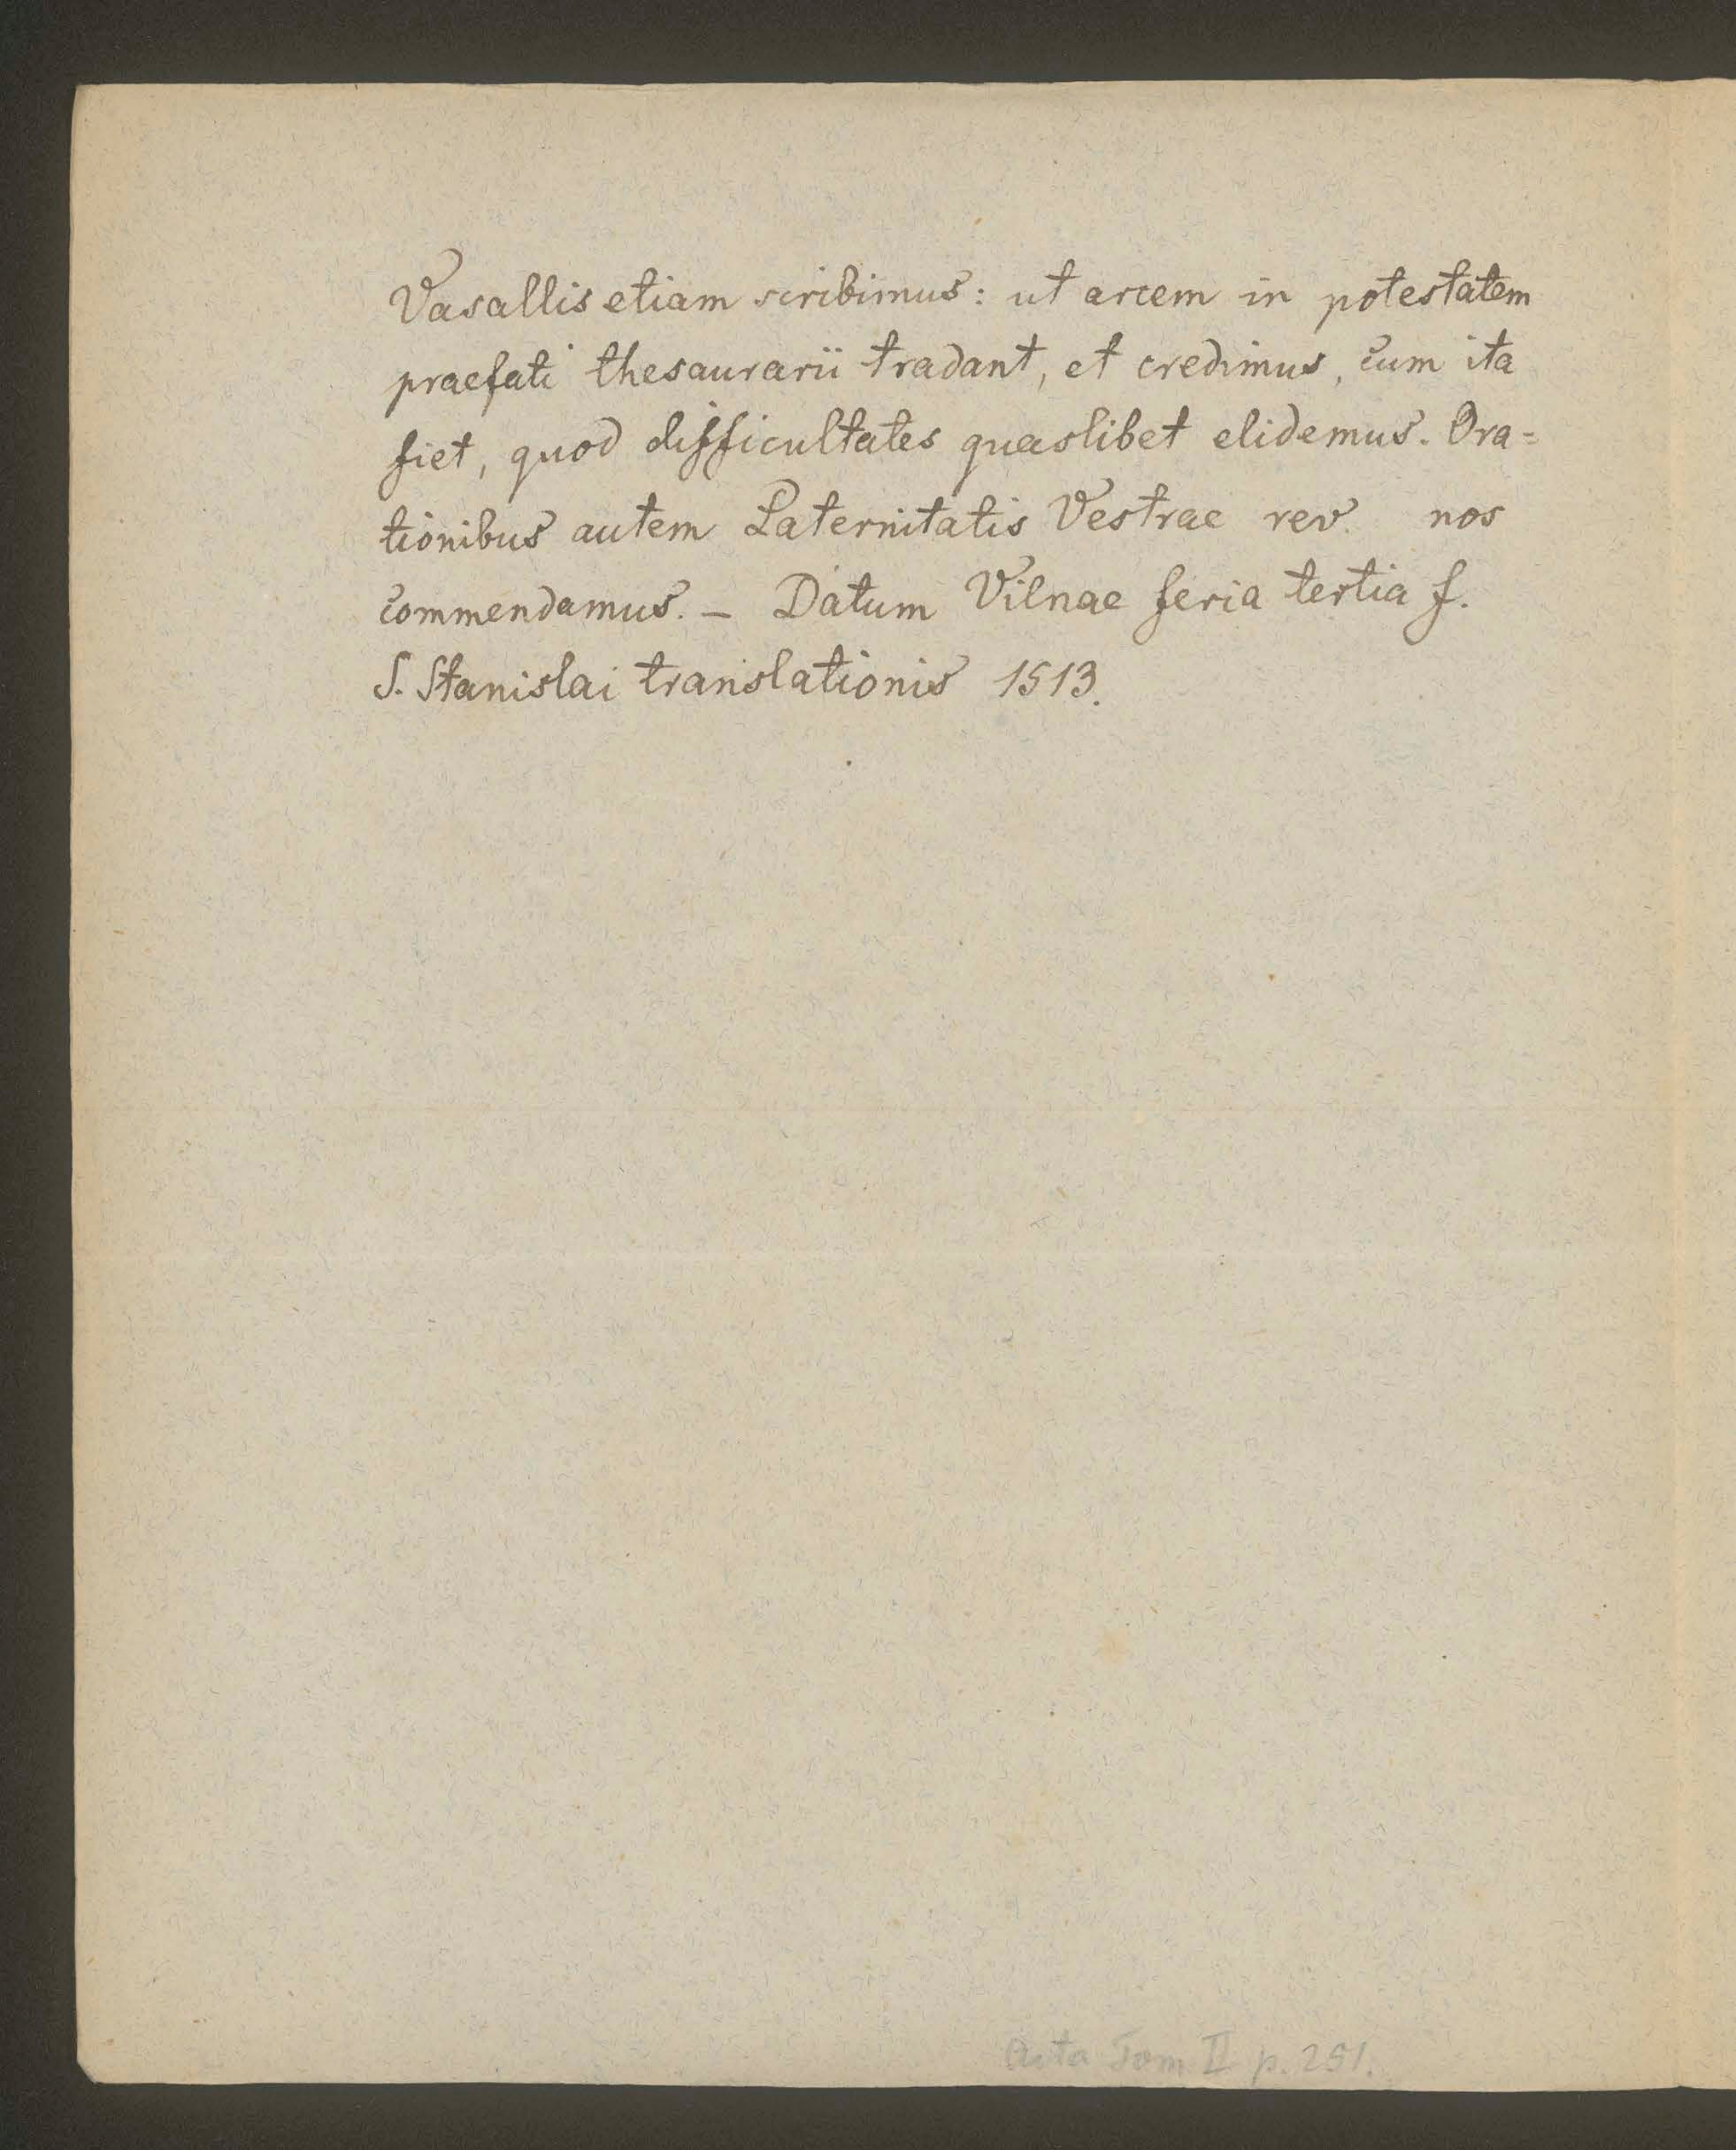 Vasallis etiam scribimus: ut arcem in potestatem
praefati thesaurarii tradant, et credimus, cum ita
fiet, quod difficultates quaslibet elidemus. Ora=
tionibus autem Paternitatis Vestrae rev. nos
commendamus. — Datum Vilnae feria tertia f.
S. Stanislai translationis 1513.
Acta Tom II p. 251.